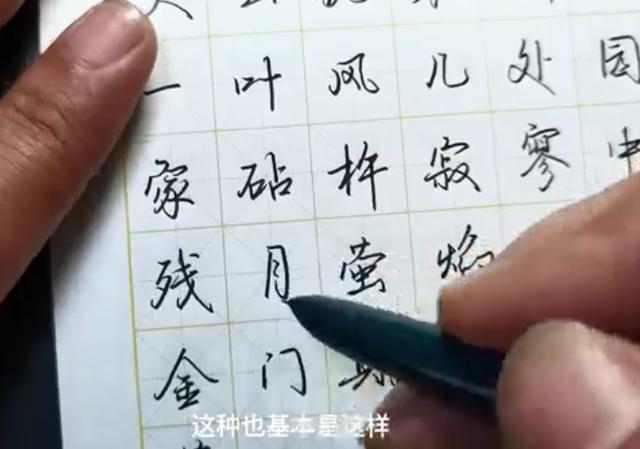 一叶风几处园
家砧杵寂寥中
残月萤焰
金门
这种也基本是这样